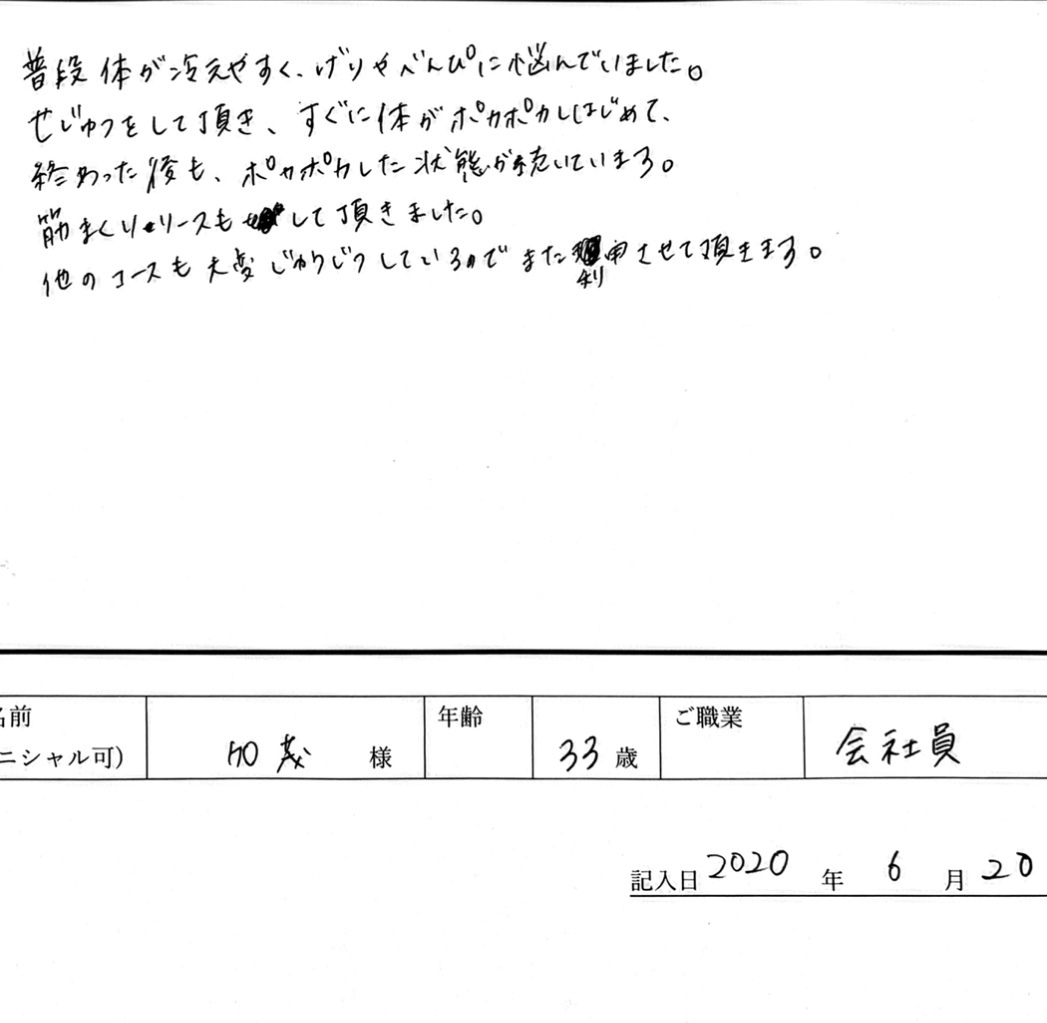 普段体が冷えやすく、げりやべんぴに悩んでいました。
せじゅつをして頂き、すぐに体がポカポカしはじめて、
終わった後も、ポカポカした状態が続いています。
筋まくリリースもして頂きました。
他のコースも大変じゅうじつしているのでまた利用させて頂きます。
名前
ニシャル可)
様
年齢
33歳
ご職業
会社員
記入日 2020 年 6 月 20